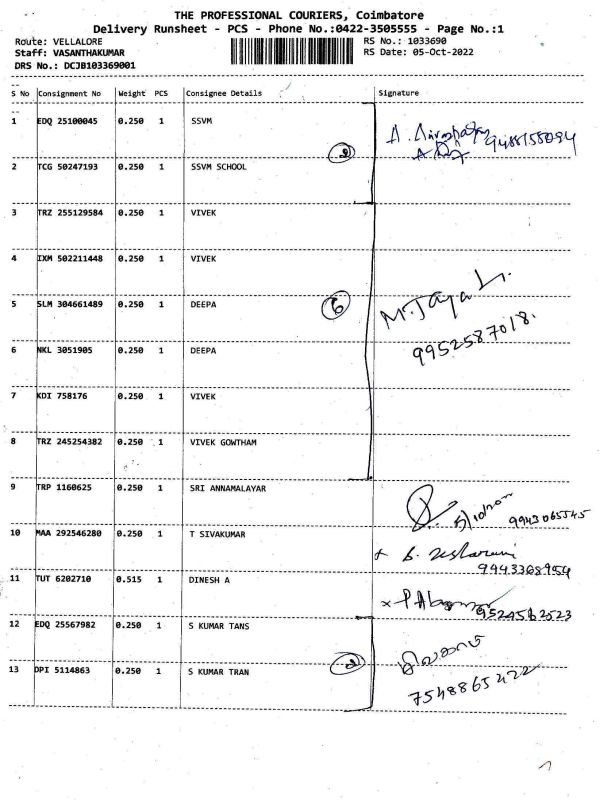 THE PROFESSIONAL COURIERS, Coimbatore
Delivery Runsheet - PCS - Phone No.:0422-3505555 - Page No.:1
Route: VELLALORE RS No.: 1033690
Staff: VASANTHAKUMAR RS Date: 05-Oct-2022
DRS No.: DCJB103369001
S No Consignment No Weight PCS Consignee Details Signature
1 EDQ 25100045 0.250 1 SSVM
9488155094
2
2 TCG 50247193 0.250 1 SSVM SCHOOL
3 TRZ 255129584 0.250 1 VIVEK
4 IXM 502211448 0.250 1 VIVEK
5 SLM 304661489 0.250 1 DEEPA 6 M. Jaya
9952587018.
6 NKL 3051905 0.250 1 DEEPA
7 KDI 758176 0.250 1 VIVEK
8 TRZ 245254382 0.250 1 VIVEK GOWTHAM
9 TRP 1160625 0.250 1 SRI ANNAMALAYAR
9943065545
10 MAA 292546280 0.250 1 T SIVAKUMAR
9943368954
11 TUT 6202710 0.515 1 DINESH A
9524562523
12 EDQ 25567982 0.250 1 S KUMAR TANS
2
13 DPI 5114863 0.250 1 S KUMAR TRAN
7548865422